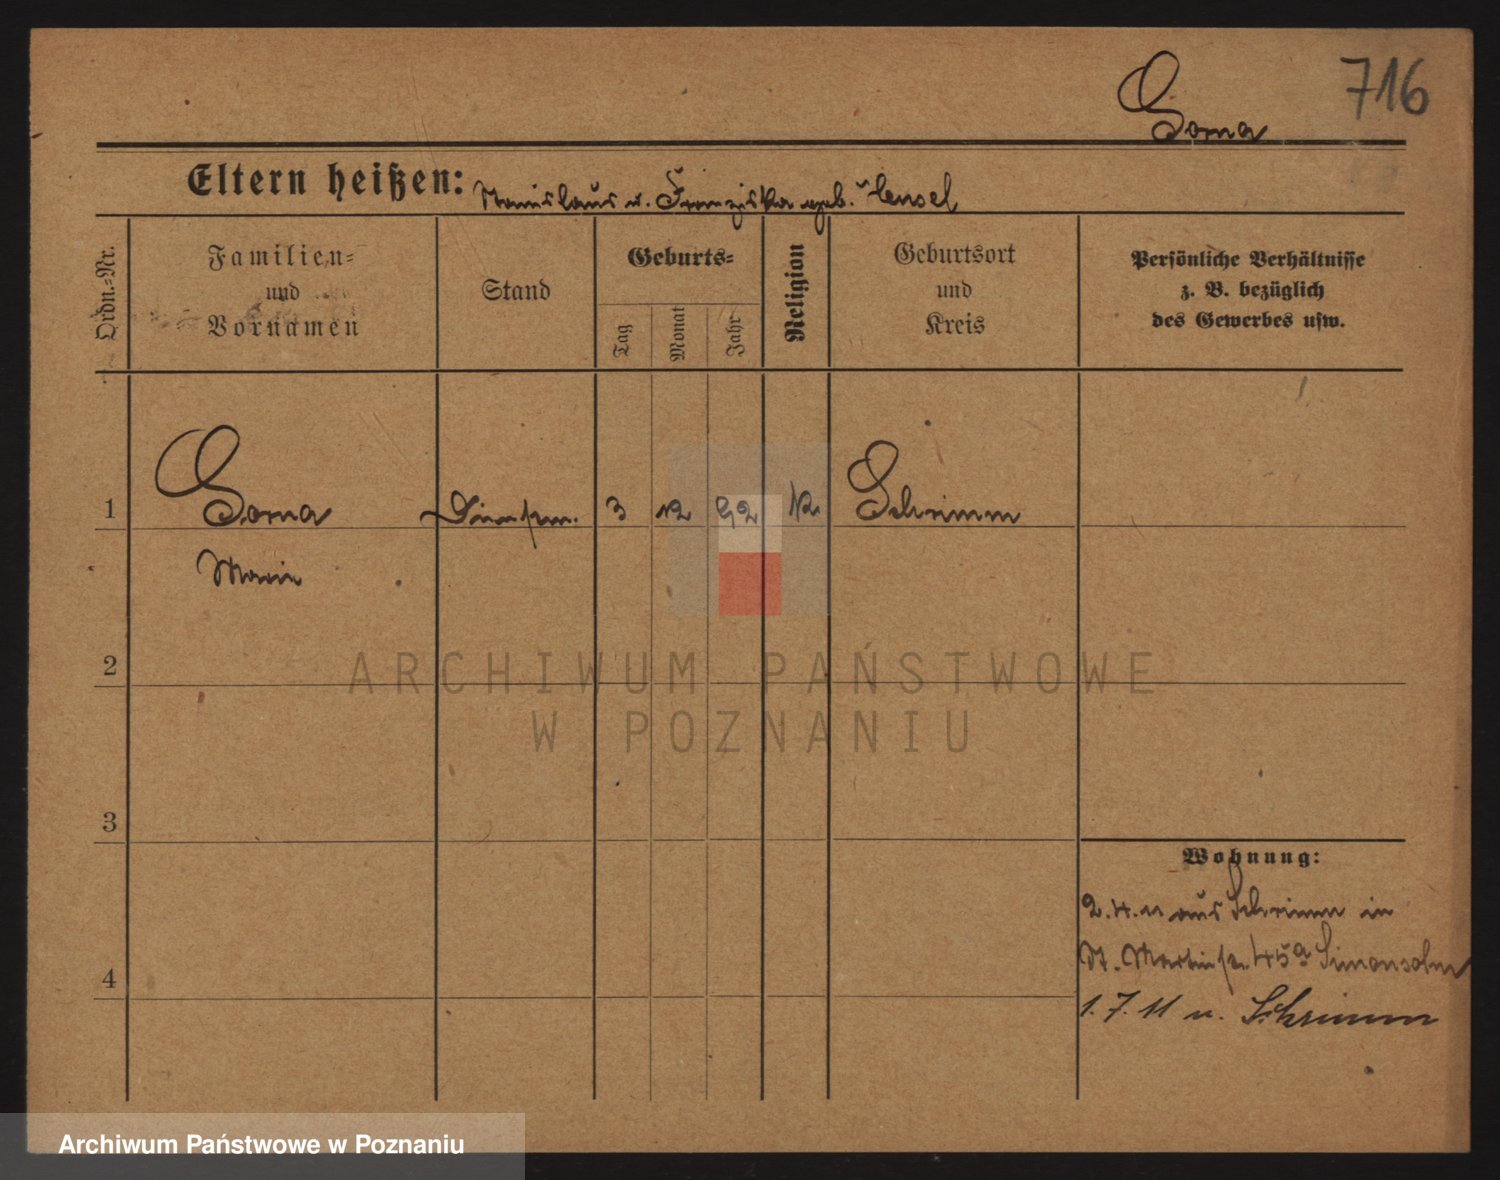 716
Soma
Eltern heißen: Stanislaus u. Franziska geb.
Ordn.=Nr.
Familien=
und
Vornamen
Stand
Geburts=
Tag
Monat
Jahr
Religion
Geburtsort
und
Kreis
Persönliche Verhältnisse
z. B. bezüglich
des Gewerbes usw.
1 Soma 3 12 92 K Schrimm
Marie
2
3
4
Wohnung:
2.4.11 aus Schrimm in
St. Martinstr. 45a Simonsohn
1.7.11 n. Schrimm
ARCHIWUM PAŃSTWOWE
W POZNANIU
Archiwum Państwowe w Poznaniu